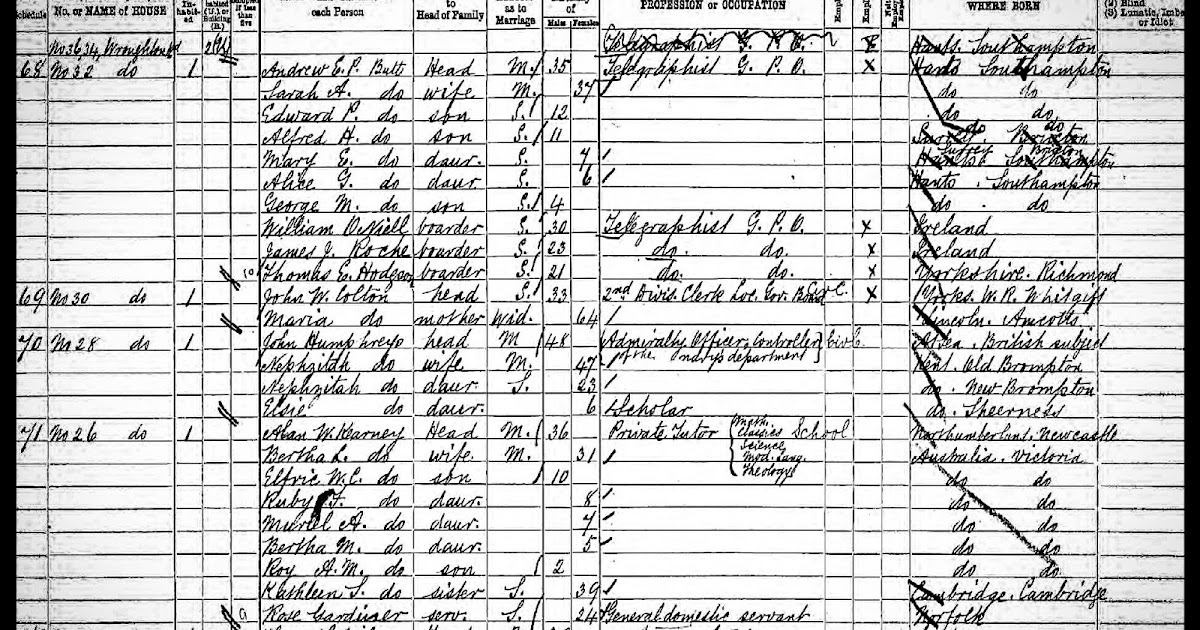 Schedule No. or NAME of HOUSE In-habit-ed each Person to Head of Family as to Marriage Males Females PROFESSION or OCCUPATION WHERE BORN (2) Blind (3) Lunatic, Imbe or Idiot
No 36, 34, Wroughton Rd 2 Telegraphist G. P. O. X Hants. Southampton
68 No 32 do 1 Andrew E. P. Butt Head M. 35 Telegraphist G. P. O. X Hants Southampton
Sarah A. do wife M. 37 do do
Edward P. do son S. 12 do do
Alfred H. do son S. 11 do do
Surrey Brixton
Mary E. do daur. S. 7 Hants. Southampton
Alice G. do daur S. 6 Hants. Southampton
George M. do son S. 4 do do
William O'Niell boarder S. 30 Telegraphist G. P. O. X Ireland
James J. Roche boarder S. 23 do. do. X Ireland
10 Thomas E. Hodgson boarder S. 21 do. do. X Yorkshire. Richmond
69 No 30 do 1 John W. Colton head S. 33 2nd Divis. Clerk Loc. Gov. Board Civ. C. X Yorks. W. R. Whitgift
Maria do mother Wid. 64 Lincoln. Amcotts
70 No 28 do 1 John Humphreys head M 48 Admiralty Officer, Controller Civ C. At Sea. British subject
Nephzitah do wife M. 47 of the department Kent. Old Brompton
Nephzitah do daur S. 23 do. New Brompton
Elsie do daur. 6 Scholar do. Sheerness
71 No 26 do 1 Alan W. Kearney Head M. 36 Private Tutor Math. Classics Science Mod. Lang. Theology School Northumberland. Newcastle
Bertha L. do wife M. 31 Australia. Victoria
Elfric W. C. do son 10 do do
Ruby F. do daur. 8 do do
Muriel A. do daur. 7 do do
Bertha M. do daur. 5 do do
Roy A. M. do son 2 do do
Kathleen S. do sister S. 39 Cambridge. Cambridge
a Rose Gardiner serv. S. 24 General domestic servant Norfolk